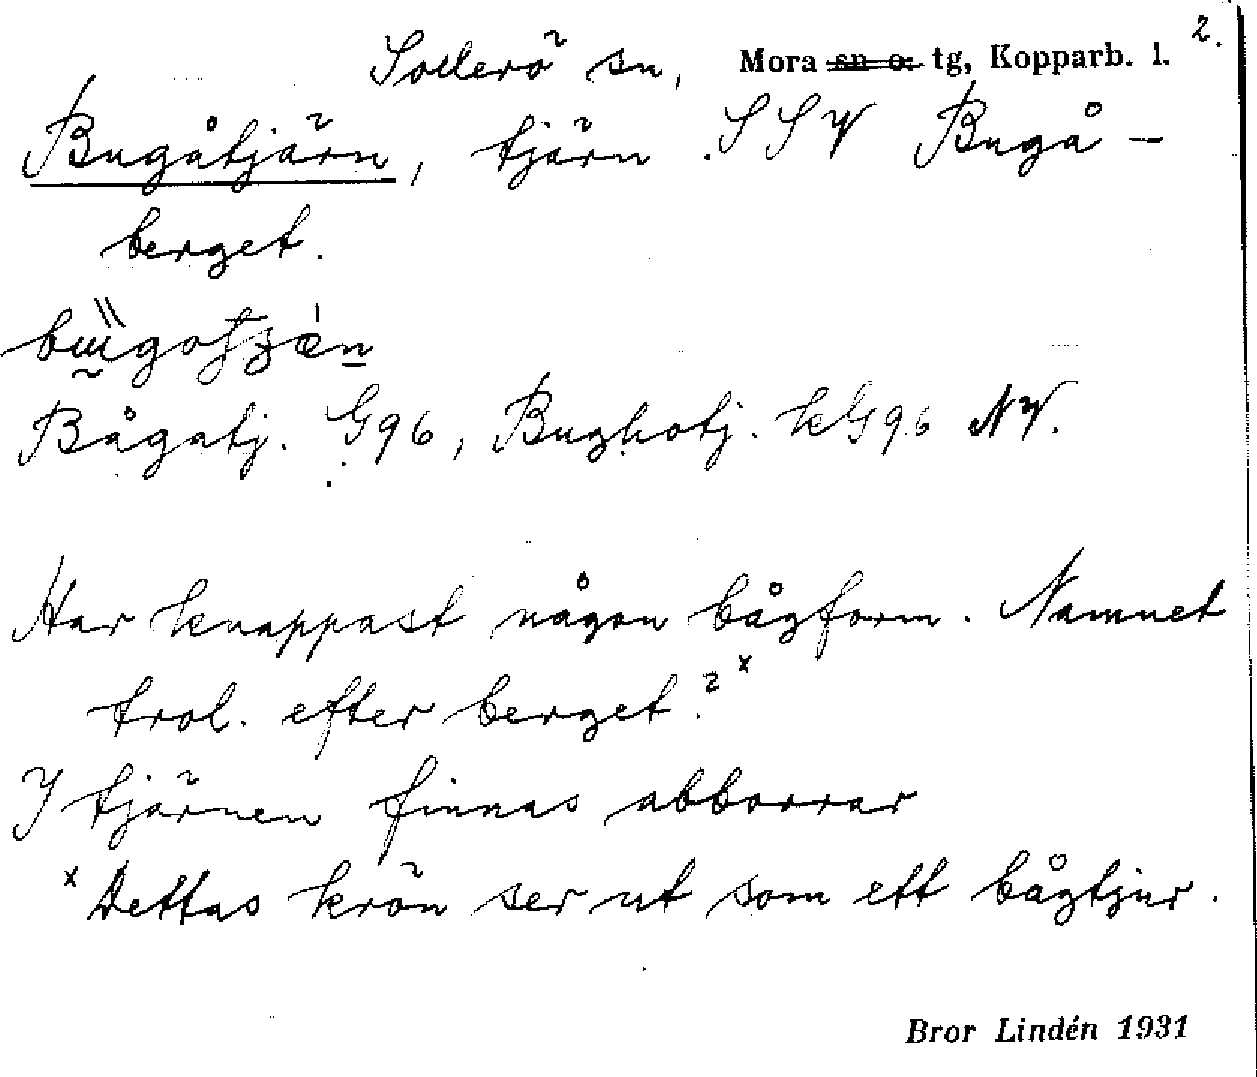 2.
Sollerö sn, Mora ~~sn o.~~ tg, Kopparb. l.
Bugåtjärn, tjärn SSV Bugå-
berget.
Bågatj. G96, Bughotj. kG96 NV.
Har knappast någon bågform. Namnet
trol. efter berget.? x
I tjärnen finnas abborrar
x Dettas krön ser ut som ett bågtjur.
Bror Lindén 1931